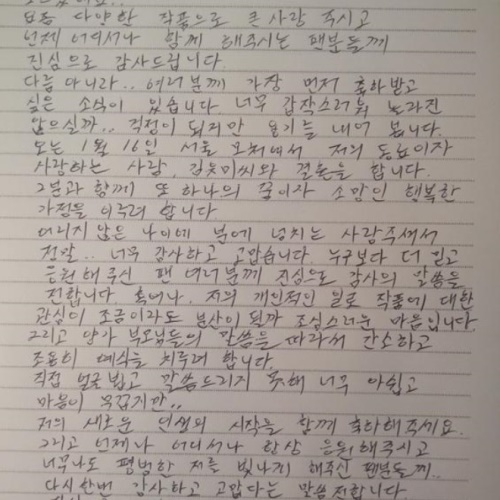 모두 다양한 작품으로 큰사랑 주시고
언제 어디서나 함께 해주시는 팬분들께
진심으로 감사드립니다.
다름 아니라.. 여러분께 가장 먼저 축하받고
싶은 소식이 있습니다 너무 갑작스러워 놀라진
않으실까.. 걱정이 되지만 용기를 내어 봅니다.
오는 1월 16일 서울 모처에서 저의 동료이자
사랑하는 사람, 김윳미씨와 결혼을 합니다.
그분과 함께 또 하나의 꿈이자 소망인 행복한
가정을 이루려 합니다.
어리지 않은 나이에 분에 넘치는 사랑주셔서
정말.. 너무 감사하고 고맙습니다. 누구보다 더 믿고
응원해 주신 팬 여러분께 진심으로 감사의 말씀을
전합니다. 혹여나, 저의 개인적인 일로 작품에 대한
관심이 조금이라도 분산이 될까 조심스러운 마음입니다.
그리고 양가 부모님들의 말씀을 따라서 간소하고
조용히 예식을 치루려 합니다.
직접 얼굴 뵙고 말씀드리지 못해 너무 아쉽고
마음이 무겁지만..
저의 새로운 인생의 시작을 함께 축하해주세요.
그리고 언제나 어디서나 항상 응원해주시고
너무나도 평범한 저를 빛나게 해주신 팬분들께..
다시한번 감사하고 고맙다는 말씀 전합니다